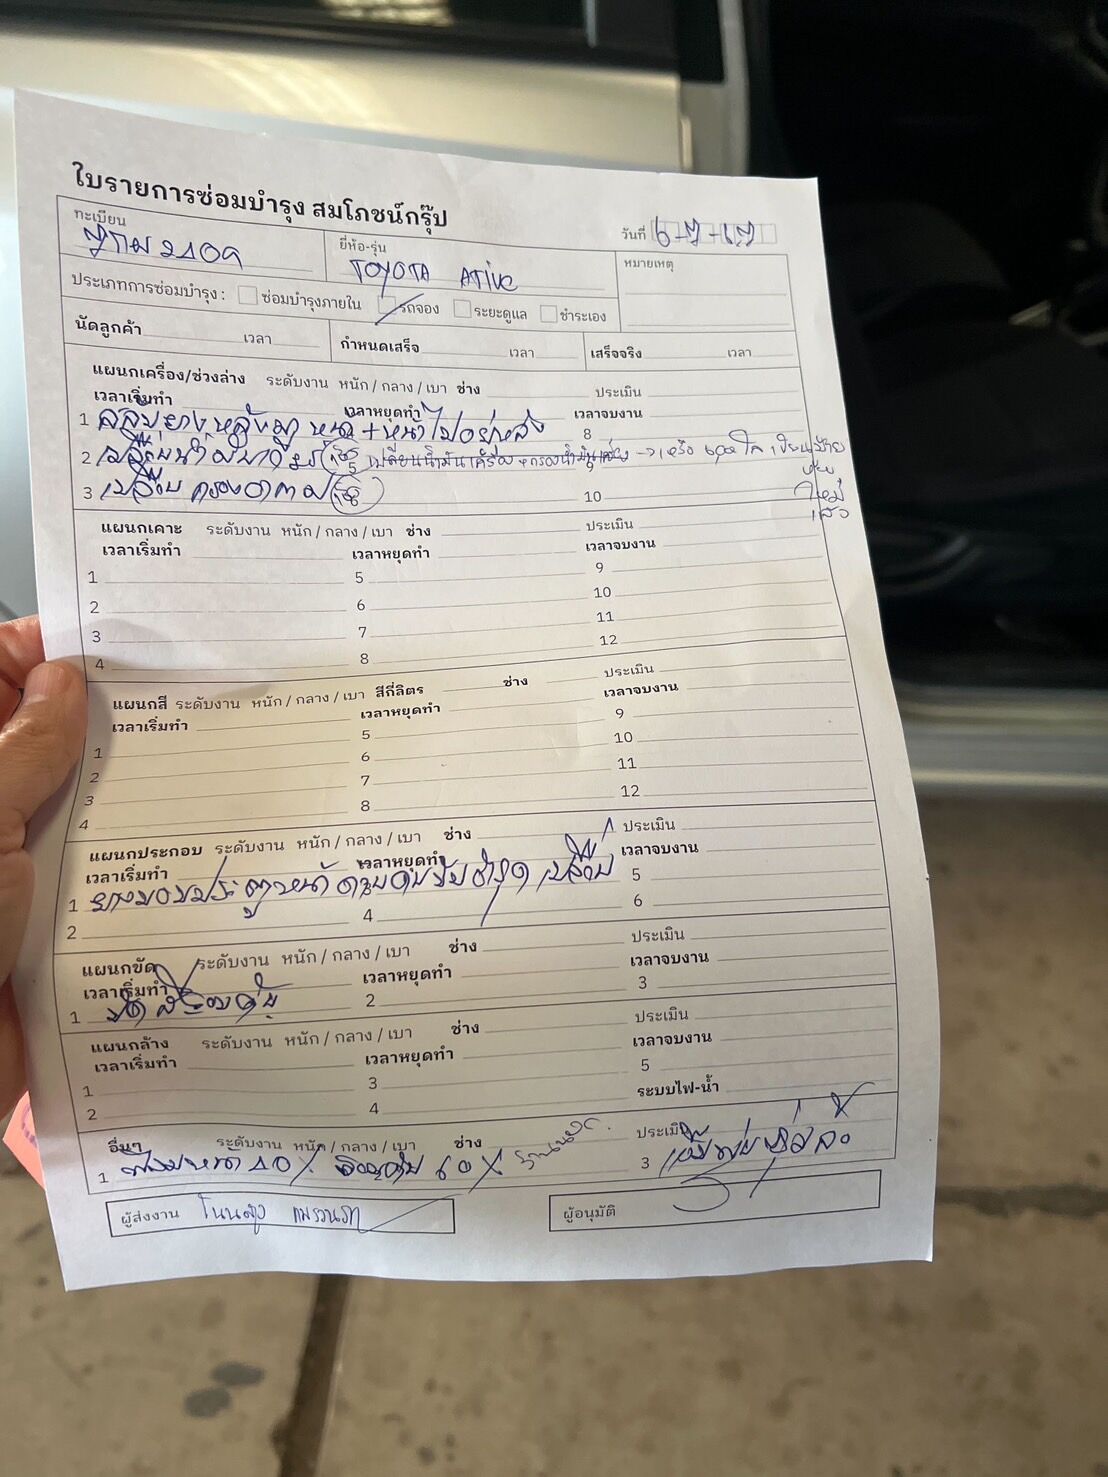 ใบรายการซ่อมบำรุง สมโภชน์กรุ๊ป
ทะเบียน
ยี่ห้อ-รุ่น TOYOTA ATive
วันที่ 6-7-67
หมายเหตุ
ประเภทการซ่อมบำรุง : ซ่อมบำรุงภายใน รถจอง ระยะดูแล ชำระเอง
นัดลูกค้า เวลา กำหนดเสร็จ เวลา เสร็จจริง เวลา
แผนกเครื่อง/ช่วงล่าง ระดับงาน หนัก / กลาง / เบา ช่าง ประเมิน
เวลาเริ่มทำ เวลาหยุดทำ เวลาจบงาน
1 สลับยางหลังมาหน้า + หน้าไปอยู่หลัง 8
2 เปลี่ยนน้ำมันเกียร์ 5 เปลี่ยนน้ำมันเครื่อง + กรองน้ำมันเครื่อง
3 เปลี่ยนกรองอากาศ 10
ใหม่
แล้ว
แผนกเคาะ ระดับงาน หนัก / กลาง / เบา ช่าง ประเมิน
เวลาเริ่มทำ เวลาหยุดทำ เวลาจบงาน
1 5 9
2 6 10
3 7 11
4 8 12
แผนกสี ระดับงาน หนัก / กลาง / เบา สีกี่ลิตร ช่าง ประเมิน
เวลาเริ่มทำ เวลาหยุดทำ เวลาจบงาน
1 5 9
2 6 10
3 7 11
4 8 12
แผนกประกอบ ระดับงาน หนัก / กลาง / เบา ช่าง ประเมิน
เวลาเริ่มทำ เวลาหยุดทำ เวลาจบงาน
1 ยางขอบประตูหน้าด้านคนขับชำรุด เปลี่ยน 5
2 4 6
แผนกขัด ระดับงาน หนัก / กลาง / เบา ช่าง ประเมิน
เวลาเริ่มทำ เวลาหยุดทำ เวลาจบงาน
1 ขัดสีรอบคัน 2 3
แผนกล้าง ระดับงาน หนัก / กลาง / เบา ช่าง ประเมิน
เวลาเริ่มทำ เวลาหยุดทำ เวลาจบงาน
1 3 5
2 4 ระบบไฟ-น้ำ
อื่นๆ ระดับงาน หนัก / กลาง / เบา ช่าง ประเมิน
1 ฟิล์มหน้า 40% รอบคัน 60% 3
ผู้ส่งงาน
ผู้อนุมัติ